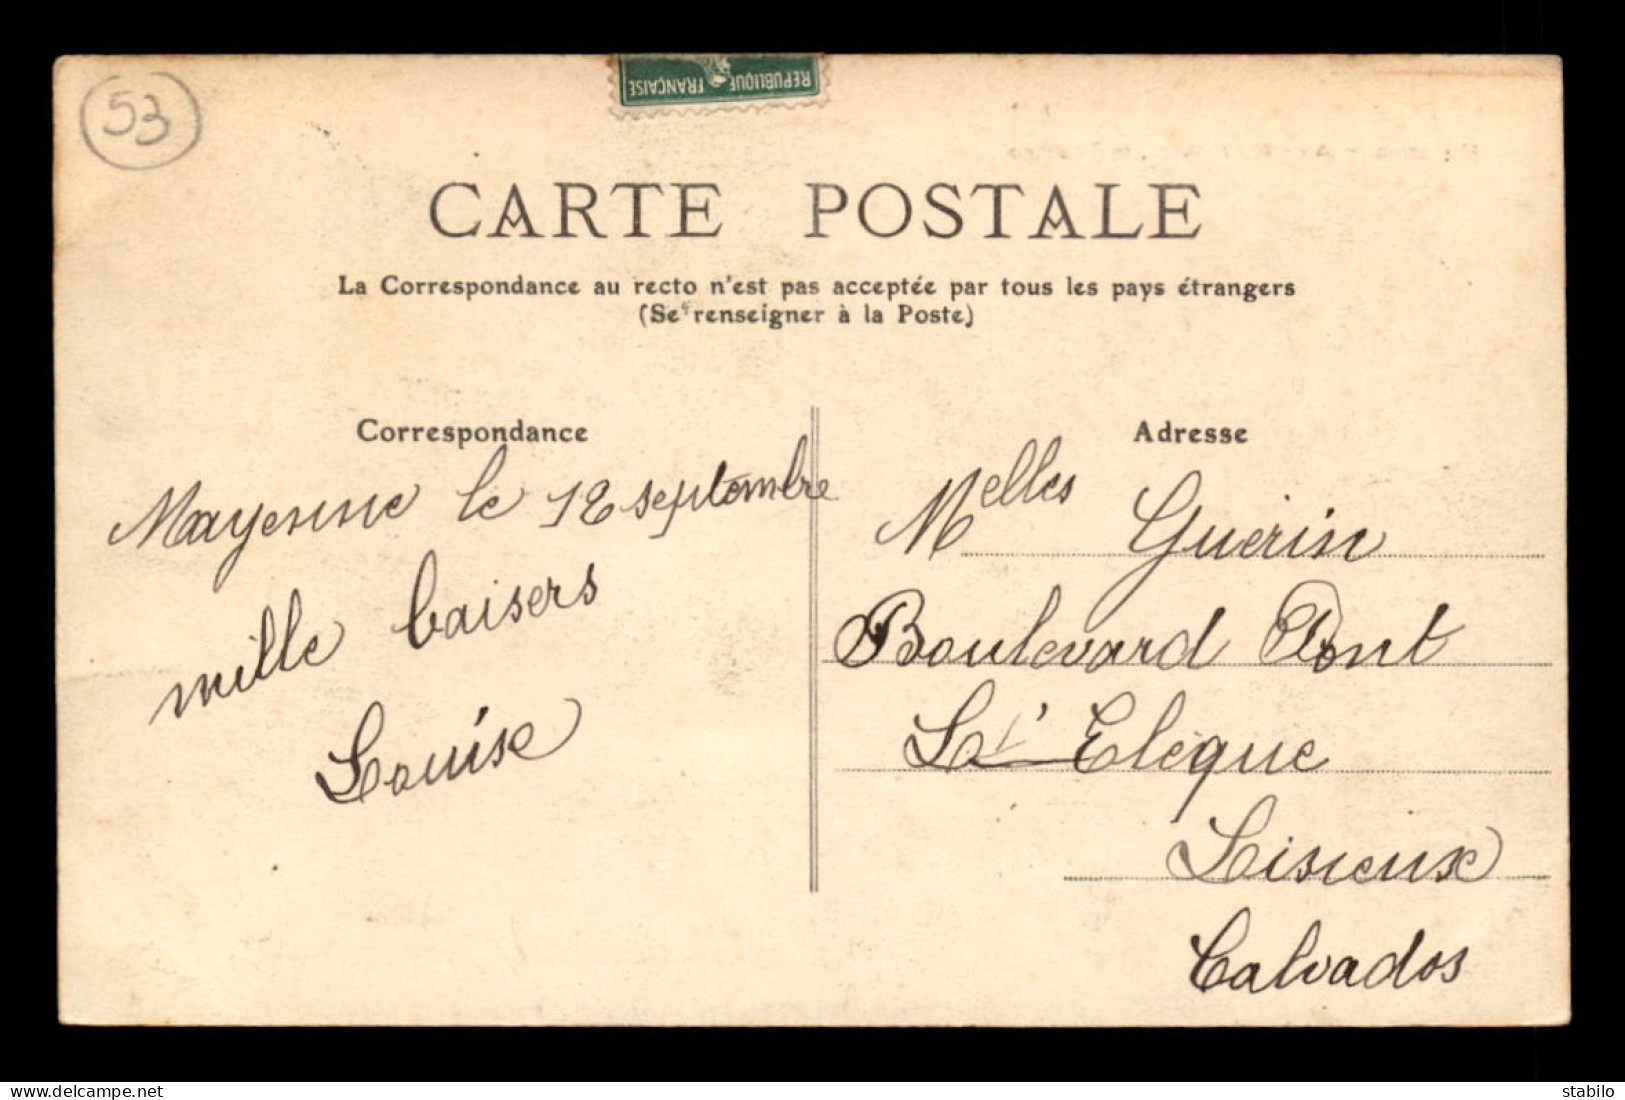 53
REPUBLIQUE FRANÇAISE
CARTE POSTALE
La Correspondance au recto n'est pas acceptée par tous les pays étrangers
(Se renseigner à la Poste)
Correspondance
Mayenne le 12 septembre
mille baisers
Louise
Adresse
Melles Guerin
Boulevard Pont
L'Elèque
Lisieux
Calvados
www.delcampe.net
stabilo